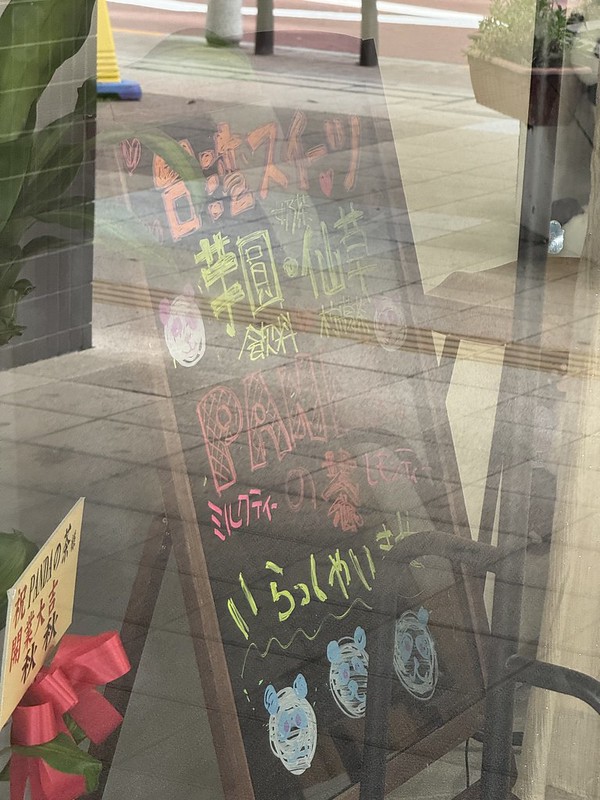 台湾スイーツ
芋圓・仙草
飲料
PAN
の茶
ミルクティー
いらっしゃい
祝 PANDAの茶様
開業大吉
秋秋